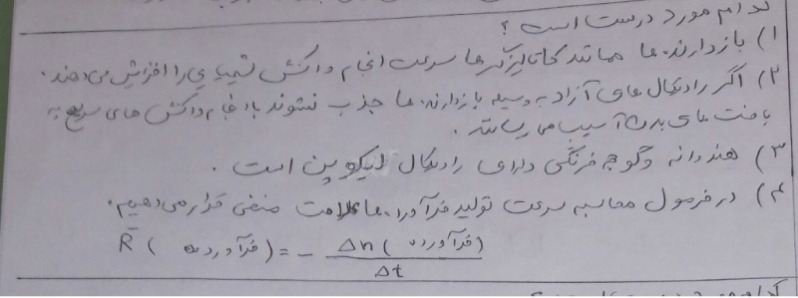 کدام مورد درست است ؟
۱) بازدارنده ها همانند کاتالیزگرها سرعت انجام واکنش شیمیایی را افزایش می دهند.
۲) اگر رادیکال های آزاد به وسیله بازدارنده ها جذب نشوند با انجام واکنش های سریع به
بافت های بدن آسیب می رسانند.
۳) هندوانه و گوجه فرنگی دارای رادیکال لیکوپن است .
۴) در فرمول محاسبه سرعت تولید فرآورده ها علامت منفی قرار می دهیم.
R̄ (فرآورده) = - Δn (فرآورده) / Δt